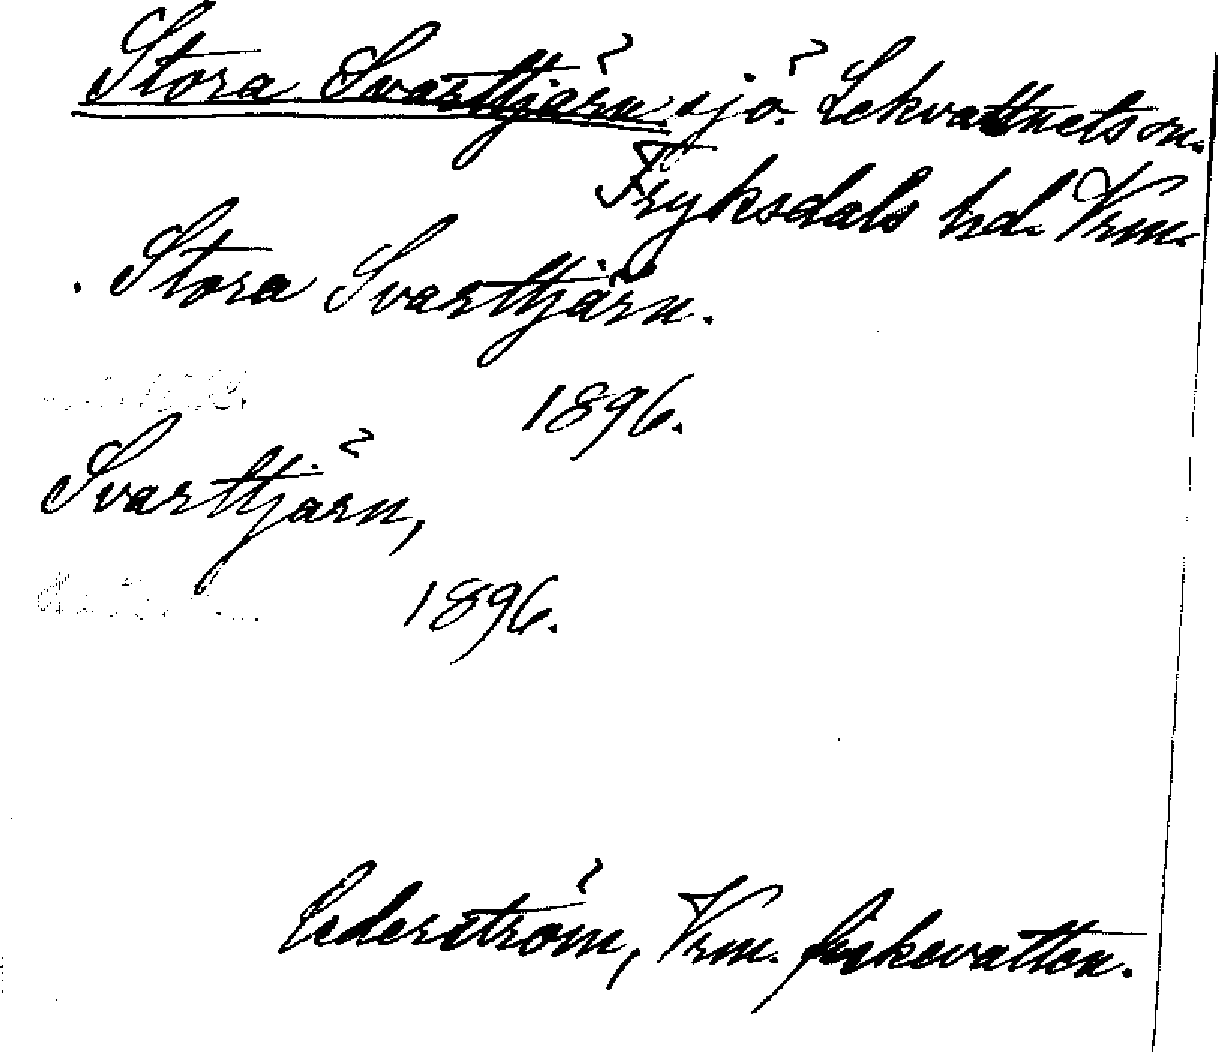 Stora Svarttjärn sjö. Lekvattnets sn.
Fryksdals hd. Vrm.
. Stora Svarttjärn.
1896.
Svarttjärn,
1896.
Cederström, Vrm. fiskevatten.